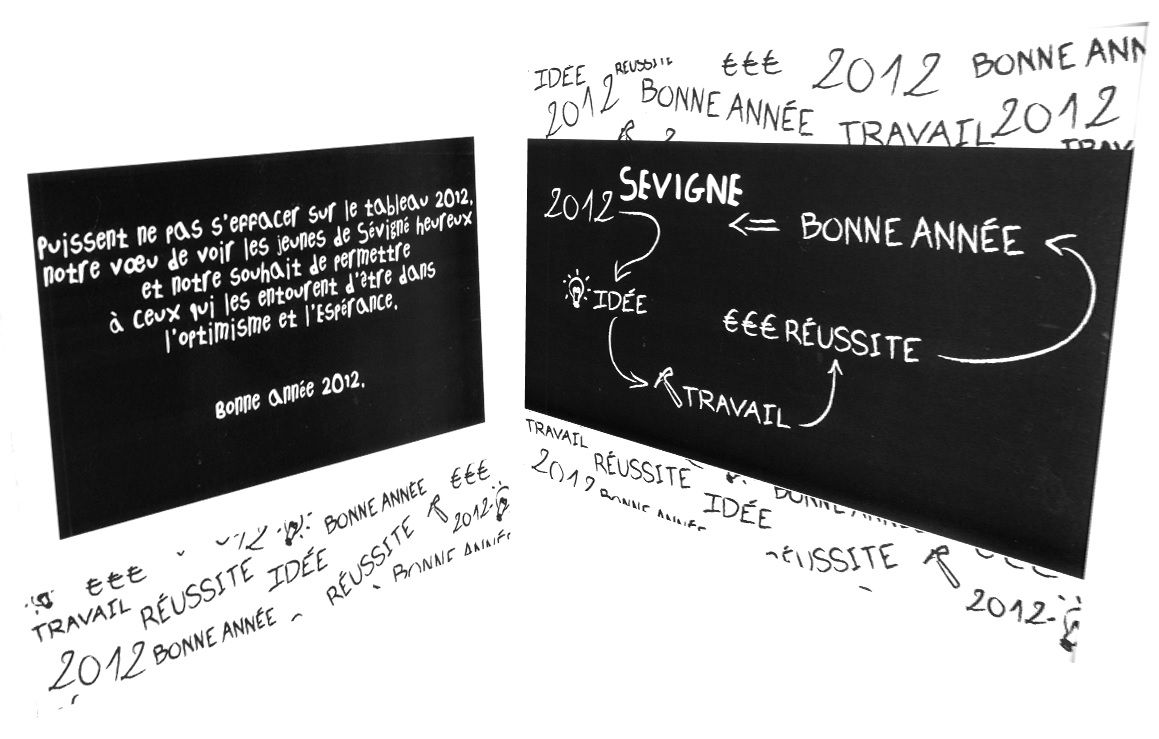 Puissent ne pas s'effacer sur le tableau 2012,
notre vœu de voir les jeunes de Sévigné heureux
et notre souhait de permettre
à ceux qui les entourent d'être dans
l'optimisme et l'Espérance.
Bonne année 2012.
€€€ BONNE ANNÉE €€€
TRAVAIL RÉUSSITE IDÉE RÉUSSITE 2012
2012 BONNE ANNÉE BONNE ANNÉE
IDÉE RÉUSSITE €€€ 2012 BONNE ANN
2012 BONNE ANNÉE TRAVAIL 2012
TRAV
SEVIGNE
2012
BONNE ANNÉE
IDÉE
€€€ RÉUSSITE
TRAVAIL
TRAVAIL
2012 RÉUSSITE BONNE ANNÉE
BONNE ANNÉE IDÉE
RÉUSSITE
2012